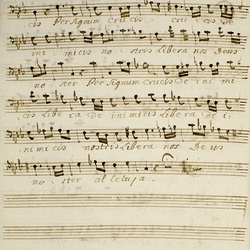 cis Per Signum Crucis cru cis de
ini mi cis no stris Libera nos Deus
no ster Per Signum Crucis De i ni mi
cis Libe ra De ini mi cis Libera de i
ni mi cis nostris Libera nos De us
no ster al Leluja.